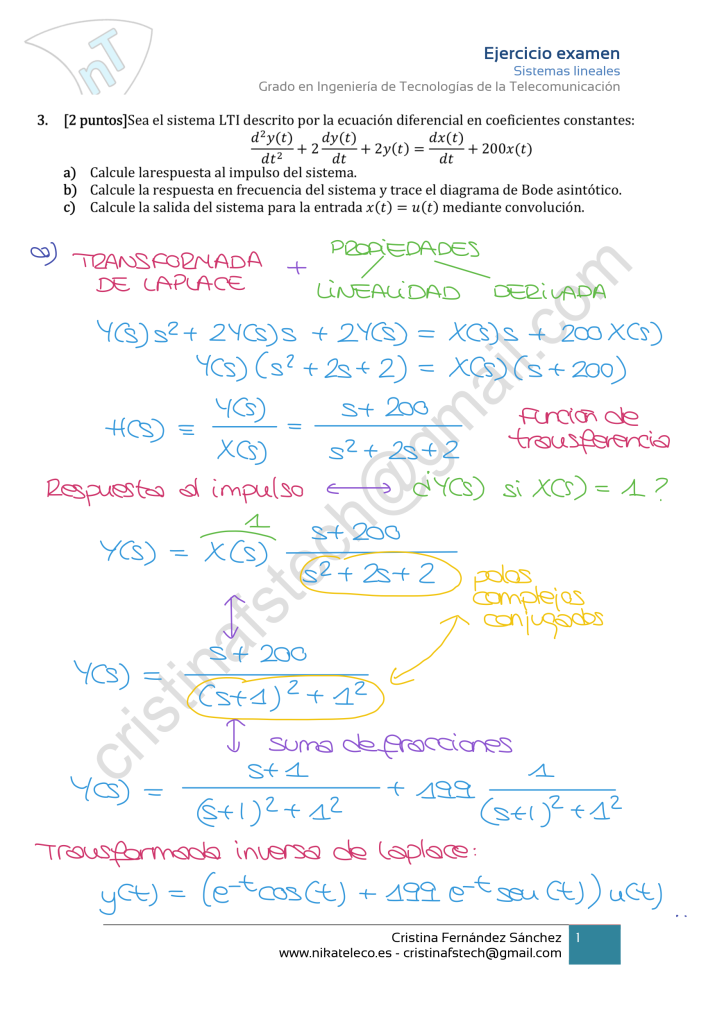 nT
Ejercicio examen
Sistemas lineales
Grado en Ingeniería de Tecnologías de la Telecomunicación
3. [2 puntos]Sea el sistema LTI descrito por la ecuación diferencial en coeficientes constantes:
d²y(t)/dt² + 2 dy(t)/dt + 2y(t) = dx(t)/dt + 200x(t)
a) Calcule larespuesta al impulso del sistema.
b) Calcule la respuesta en frecuencia del sistema y trace el diagrama de Bode asintótico.
c) Calcule la salida del sistema para la entrada x(t) = u(t) mediante convolución.
a) TRANSFORMADA DE LAPLACE + PROPIEDADES
LINEALIDAD DERIVADA
Y(s)s² + 2Y(s)s + 2Y(s) = X(s)s + 200X(s)
Y(s)(s² + 2s + 2) = X(s)(s + 200)
H(s) ≡ Y(s)/X(s) = (s + 200)/(s² + 2s + 2)
Función de transferencia
Respuesta al impulso ⟷ ¿Y(s) si X(s) = 1?
1
Y(s) = X(s) (s + 200)/(s² + 2s + 2)
polos
complejos
conjugados
Y(s) = (s + 200)/((s+1)² + 1²)
suma de fracciones
Y(s) = (s+1)/((s+1)² + 1²) + 199 1/((s+1)² + 1²)
Transformada inversa de Laplace:
y(t) = (e^-t cos(t) + 199 e^-t sen(t)) u(t)
cristinafstech@gmail.com
Cristina Fernández Sánchez 1
www.nikateleco.es - cristinafstech@gmail.com